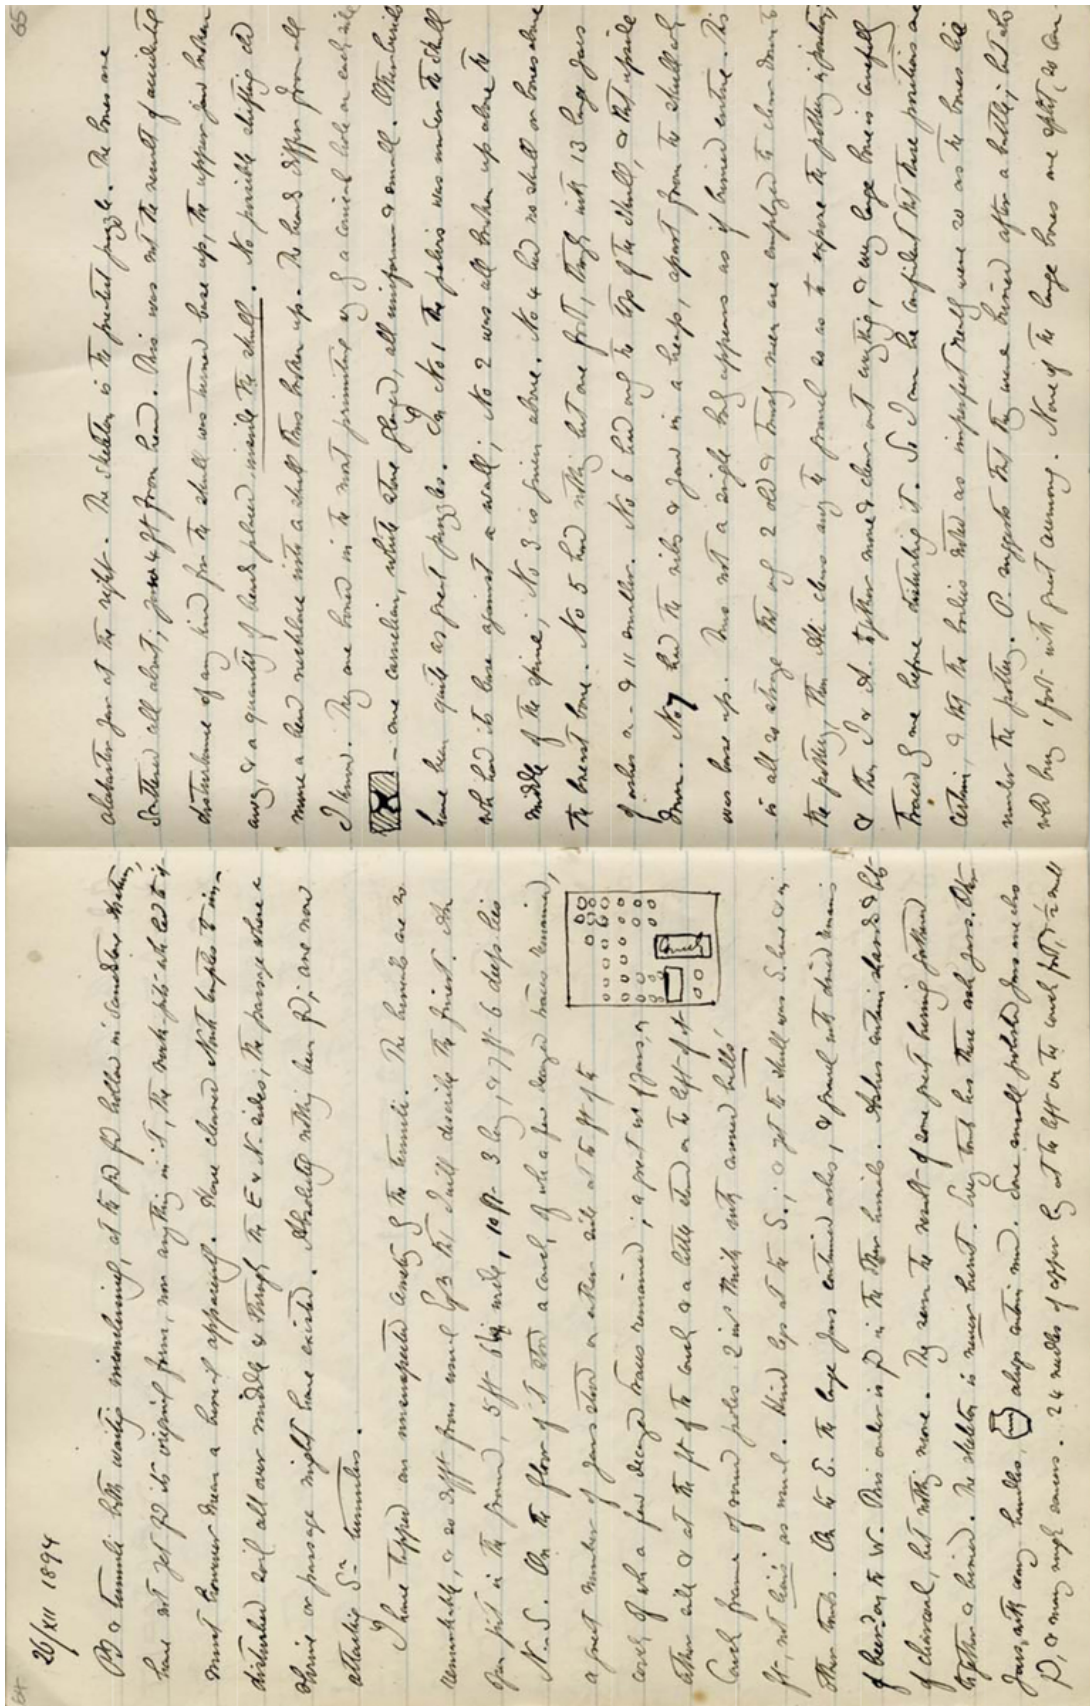 64
26/XII 1894
B a tumulus both waiting
have not yet fd its original form, nor anything in it, The
must however mean a burial apparently. Have cleared North temples to in-
disturbed soil all over middle & through the E & N. sides; the passage where a
shrine or passage might have existed. Absolutely nothing been fd; are now
attacking Sn tumulus.
I have tapped an unsuspected cemetery of the tumuli. The burials are so
remarkable, & so difft from usual Egn that I will describe the finest. An
open pit in the ground, 5 ft 6 wide, 10 ft - 3 long, & 7 ft - 6 deep lies
N. - S. On the floor of it stood a couch, of wh a few decayed traces remained,
a great number of jars stood on either side at the ft of the
couch of wh a few decayed traces remained; a great no of jars, on
either side & at the ft of the couch & a little stand on the left of it
Couch
Couch frame of round poles 2 ins thick with carved bulls'
ft, not lions' as usual. Hind legs at the S.; & yet the skull was S. here & in
other tombs. On the E. the large jars contained ashes, & gravel with dried remains
of beer? on the W. This order is fd in the other burials. Ashes contain charred bits
of charcoal, but nothing more. They seem the result of some great burning gathered
together & buried. The skeleton is never burnt. Every tomb has these ash jars. Other
jars, with wavy handles, always contain mud. Some small polished jars are also
fd, & many rough saucers. 24 needles of copper lay at the left on the couch foot, & a small
65
alabaster jar at the right. The skeleton is the greatest puzzle. The bones are
scattered all about; jaw 4 ft from head. This was not the result of accidental
disturbance of any kind for the skull was turned base up, the upper jaw broken
away, & a quantity of beads placed inside the skull. No possible shifting cd
move a bead necklace into a skull thus broken up. The beads differ from all
I know. They are bored in the most primitive way of a conical hole on each side
- one carnelian, white stone glazed, all uniform & small. Other burials
have been quite as great puzzles. In No 1 the pelvis was under the skull
wh had its base against a wall; No 2 was all broken up above the
middle of the spine; No 3 is given above. No 4 had no skull or bones above
the breast bone. No 5 had nothing but one foot, though with 13 large jars
of ashes in - & 11 smaller. No 6 had only the top of the skull, & that upside
down. No 7 had the ribs & jaw in a heap, apart from the skull wh
was base up. Thus not a single body appears as if buried entire. This
is all so strange that only 2 old & trusty men are employed to clear down to
the pottery, Then Ali clears away the gravel so as to expose the pottery in position;
& then I & A. together move & clear out anything, & every large bone is carefully
traced by me before disturbing it. So I can be confident that these positions are
certain, & that the bodies noted as imperfect really were so as the bones lie
under the pottery. P. suggests that they were buried after a battle; but who
wld bury 1 foot with great ceremony. None of the large bones are split, so can-